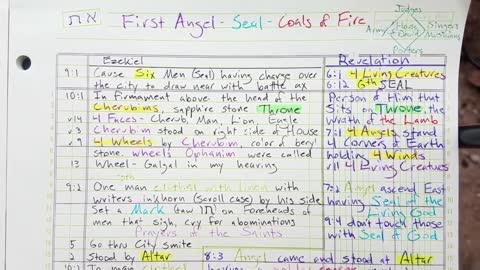 את
First Angel - Seal - Coals of Fire
Judges
Army House of David Singers Musicians
Porters
Ezekiel
9:1 Cause Six Men (Seal) having charge over
the city to draw near with battle ax
10:1 In Firmament above the head of the
Cherubims, sapphire stone Throne
v14 4 Faces - Cherub, Man, Lion, Eagle
v3 Cherubim stood on right side of House
v9 4 Wheels by Cherubim, color of beryl
stone. wheels Ophanim were called
13 Wheel - Galgal in my hearing
9:2 One man clothed with linen with
writers inkhorn (scroll case) by his side
Set a Mark on Foreheads of
men that sigh, cry for abominations
Prayers of the Saints
5 Go thru City smite
2 stood by Altar
10:1 To man clothed
Revelation
6:1 4 Living Creatures
6:12 6th SEAL
Person of Him that
Sits on Throne, the
wrath of the Lamb
7:1 4 Angels stand
4 Corners of Earth
holding 4 Winds
v11 4 Living Creatures
7:2 Angel ascend East
having Seal of the
Living God
9:4 don't touch those
with Seal of God
8:3 Angel came and stood at Altar
having a